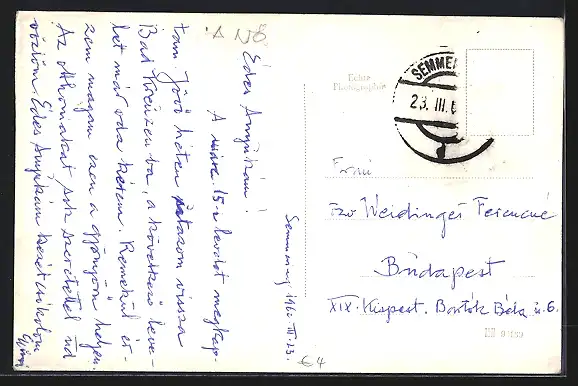 A NŐ
Édes Anyukám!
A márc 15-i levelet megkap-
tam. Jövő héten utazom vissza
Bad Kreuzen ba, a következő leve-
let már oda kérem. Remekül ér-
zem magam ezen a gyönyörű helyen.
Az Othoniakat sok szeretettel üd
vözlöm Édes Anyukám kezét csókolom
Semmering 196. III. 23.
€4
Echte
Photographie
SEMME
23. III. 6
Frau
özv Weidinger Ferencné
Budapest
XIX. Kispest. Bartók Béla u. 6.